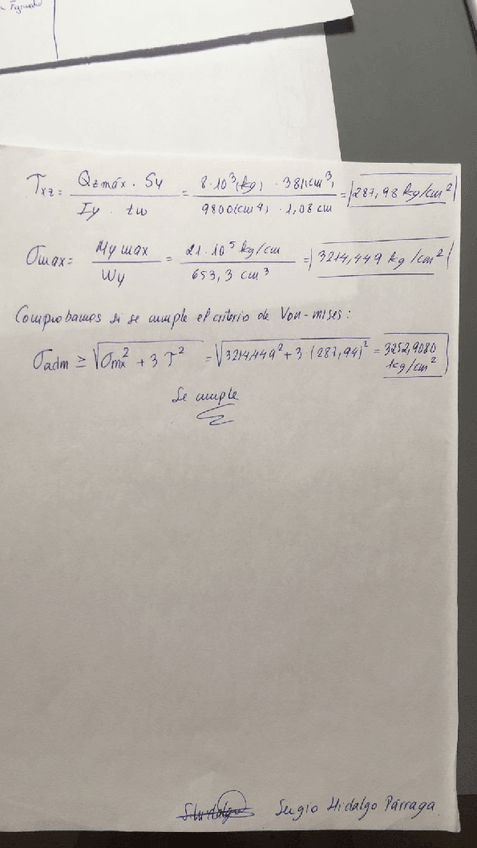 τxz = Qzmáx · Sy / Iy · tw = 8·10³(kg) · 381(cm³) / 9800(cm⁴) · 1,08 cm = 287,98 kg/cm²
σmax = My max / Wy = 21·10⁵ kg/cm / 653,3 cm³ = 3214,449 kg/cm²
Comprobamos si se cumple el criterio de Von-mises:
σadm ≥ √σmx² + 3 τ² = √3214,449² + 3·(287,94)² = 3252,9080 kg/cm²
Se cumple
Sergio Hidalgo Párraga